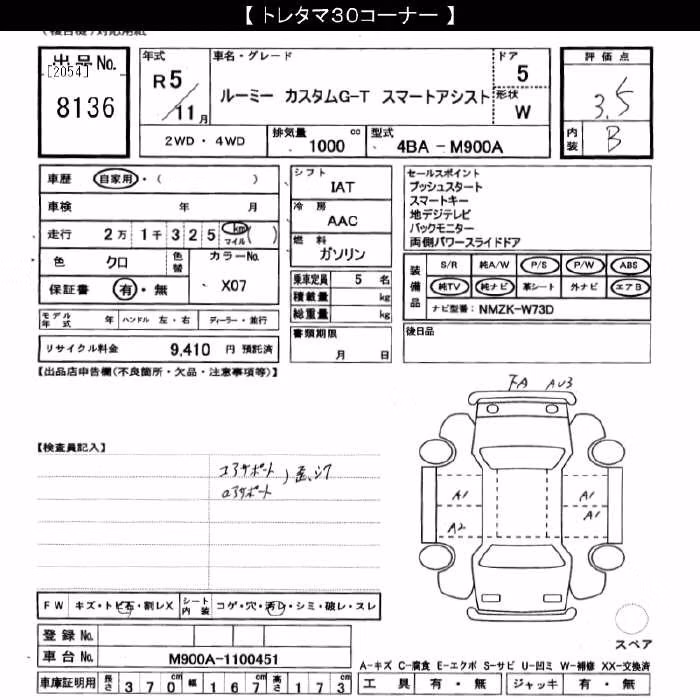 【 トレタマ30コーナー 】
(複合機)対応用紙
出品No.
[2054]
8136
年式
R5
11月
車名・グレード
ルーミー カスタムG-T スマートアシスト
ドア
5
形状
W
2WD・4WD
排気量
1000 cc
型式
4BA - M900A
評価点
3.5
内装
B
車歴 自家用・( )
車検 年 月
走行 2万 1千 3 2 5 km マイル ( )
色 クロ 色替
カラーNo.
X07
保証書 有・無
モデル年式 年 ハンドル 左・右 ディーラー・並行
リサイクル料金 9,410 円 預託済
シフト
IAT
冷房
AAC
燃料
ガソリン
乗車定員 5 名
積載量 kg
総重量 kg
書類期限
月 日
セールスポイント
プッシュスタート
スマートキー
地デジテレビ
バックモニター
両側パワースライドドア
装備品
S/R 純A/W P/S P/W ABS
純TV 純ナビ 革シート 外ナビ エアB
ナビ型番: NMZK-W73D
後日品
【出品店申告欄(不良箇所・欠品・注意事項等)】
【検査員記入】
コアサポート
ロアサポート
FA AU3
A1
A1
A1
A2
スペア
FW キズ・トビ石・割レX シート内装 コゲ・穴・汚レ・シミ・破レ・スレ
登録No.
車台No. M900A-1100451
車庫証明用 長さ 370cm 幅 167cm 高さ 173cm
A-キズ C-腐食 E-エクボ S-サビ U-凹ミ W-補修 XX-交換済
工具 有・無 ジャッキ 有・無